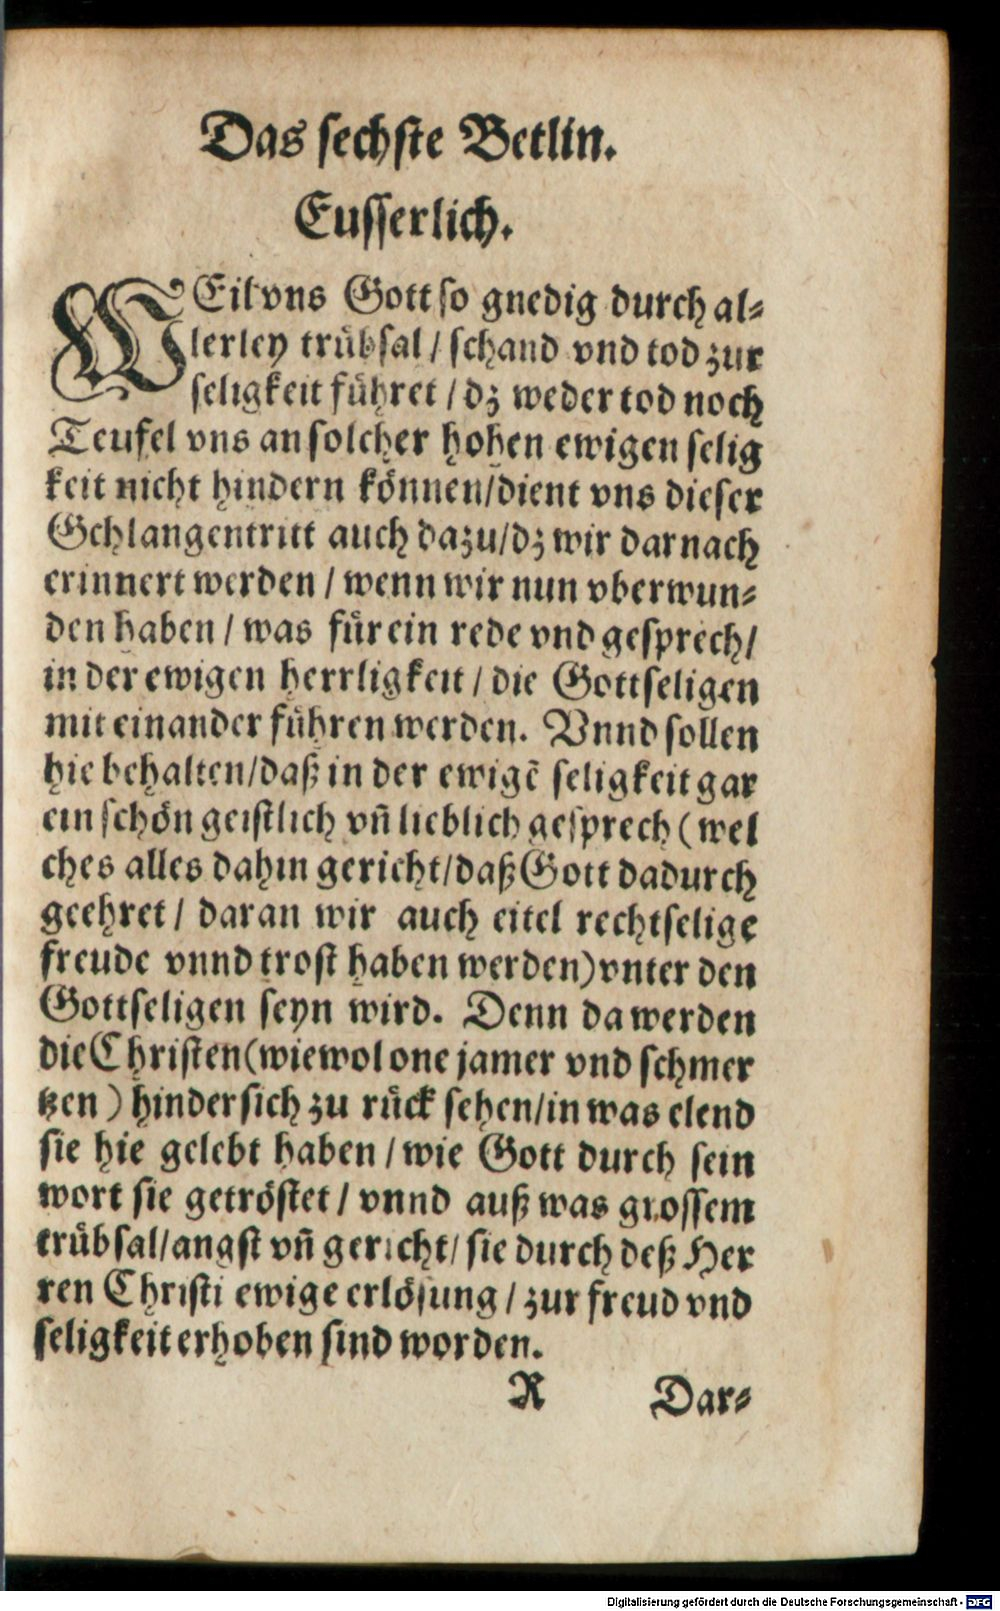 Das sechste Betlin.
Eusserlich.
WEil vns Gott so gnedig durch al⸗
lerley trübsal / schand vnd tod zur
seligkeit führet / dz weder tod noch
Teufel vns an solcher hohen ewigen selig
keit nicht hindern können/dient vns dieser
Schlangentritt auch dazu/dz wir darnach
erinnert werden / wenn wir nun vberwun⸗
den haben / was für ein rede vnd gesprech/
in der ewigen herrligkeit / die Gottseligen
mit einander führen werden. Vnnd sollen
hie behalten/daß in der ewigẽ seligkeit gar
ein schön geistlich vñ lieblich gesprech (wel
ches alles dahin gericht/daß Gott dadurch
geehret / daran wir auch eitel rechtselige
freude vnnd trost haben werden) vnter den
Gottseligen seyn wird. Denn da werden
die Christen (wiewol one jamer vnd schmer
tzen) hindersich zu rück sehen/in was elend
sie hie gelebt haben / wie Gott durch sein
wort sie getröstet / vnnd auß was grossem
trübsal/angst vñ gericht/ sie durch deß Her
ren Christi ewige erlösung / zur freud vnd
seligkeit erhoben sind worden.
R Dar⸗
Digitalisierung gefördert durch die Deutsche Forschungsgemeinschaft - DFG